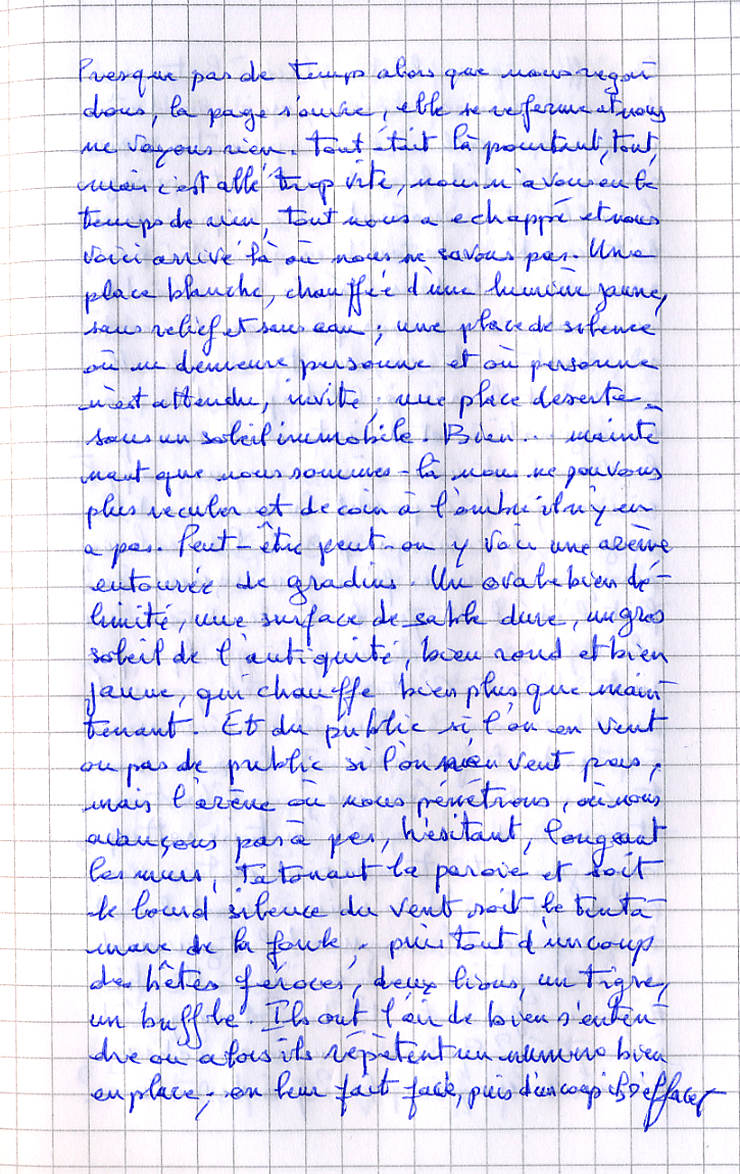 Presque pas de temps alors que nous regar
dons, la page s'ouvre, elle se referme et nous
ne voyons rien. Tout était là pourtant, tout,
mais c'est allé trop vite, nous n'avons eu le
temps de rien, tout nous a echappé et nous
voici arrivé là où nous ne savons pas. Une
place blanche, chauffée d'une lumière jaune,
sans relief et sans eau ; une place de silence
où ne demeure personne et où personne
n'est attendu, invité ; une place deserte
sous un soleil immobile. Bien.. mainte
nant que nous sommes-là nous ne pouvons
plus reculer et de coin à l'ombre il n'y en
a pas. Peut-être peut-on y voir une arène
entourée de gradins. Un ovale bien dé-
limité, une surface de sable dure, un gros
soleil de l'antiquité, bien rond et bien
jaune, qui chauffe bien plus que main
tenant. Et du public si l'on en veut
ou pas de public si l'on n'en veut pas,
mais l'arène où nous pénétrons, où nous
avançons pas à pas, hésitant, longeant
les murs, tatonant la paroie et soit
le lourd silence du vent soit le tinta
mare de la foule ; puis tout d'un coup
des bêtes féroces, deux lions, un tigre,
un buffle. Ils ont l'air de bien s'enten
dre ou alors ils répètent un numéro bien
en place ; on leur fait face, puis d'un coup ils s'effacent